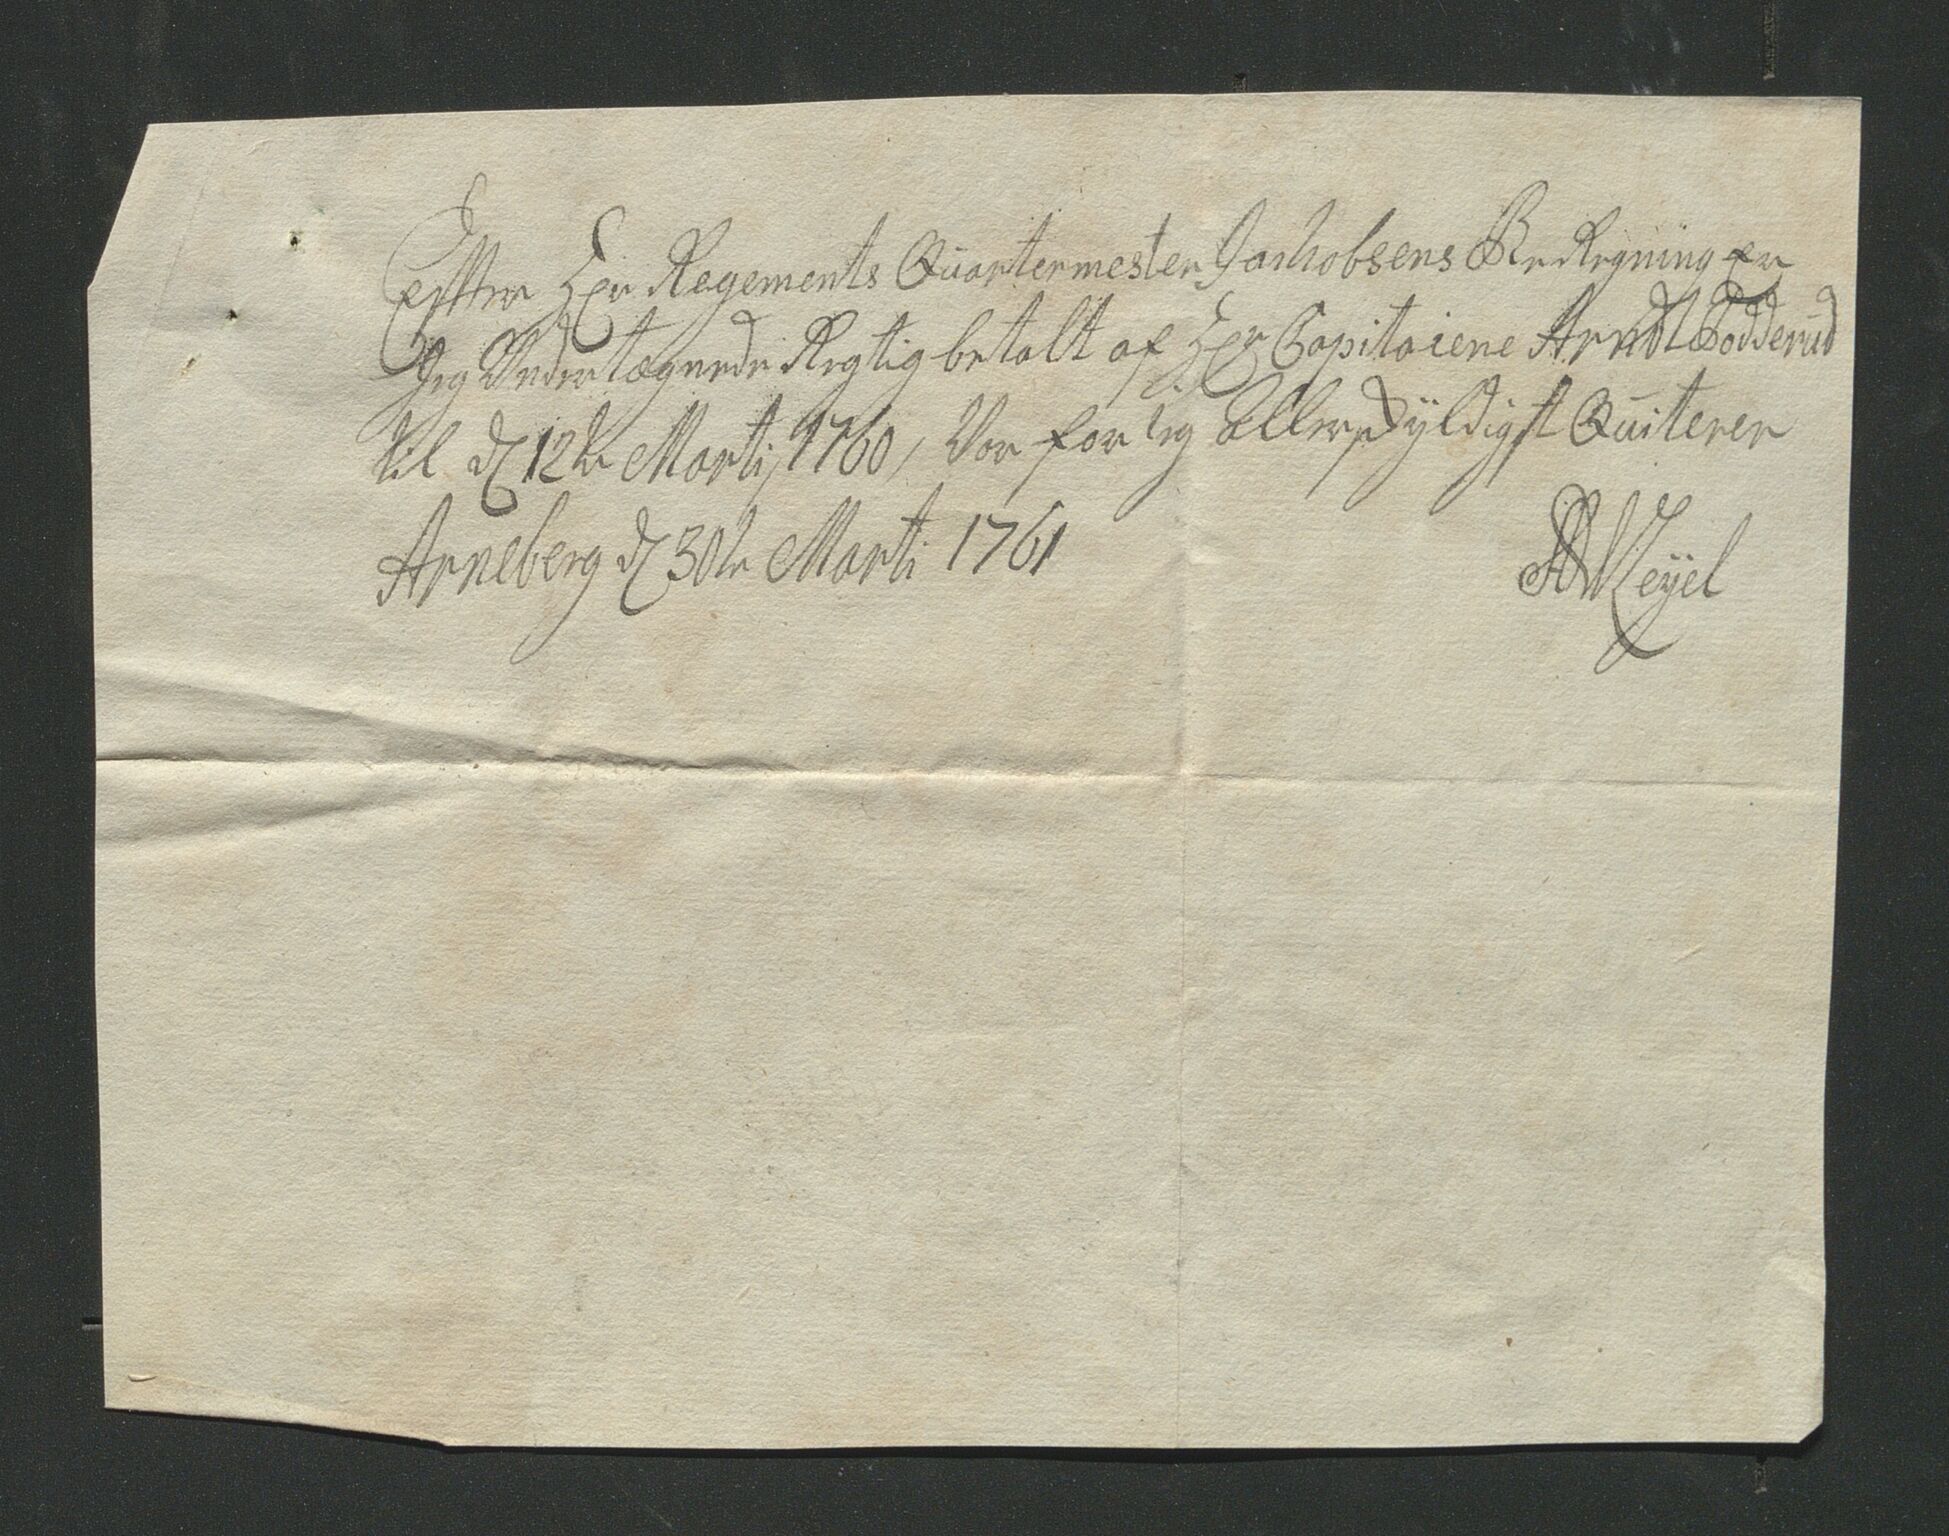 Efter Her Regements Quartermester Jachobsens BeRegning Er
Jeg Undertægnede Regtig betalt af Her Capitaiene Arndt Bodderud
til d 12te Marti 1760, Vor for ieg aller skyldigst Quiterer
Arneberg d 30te Marti 1761
Meÿel